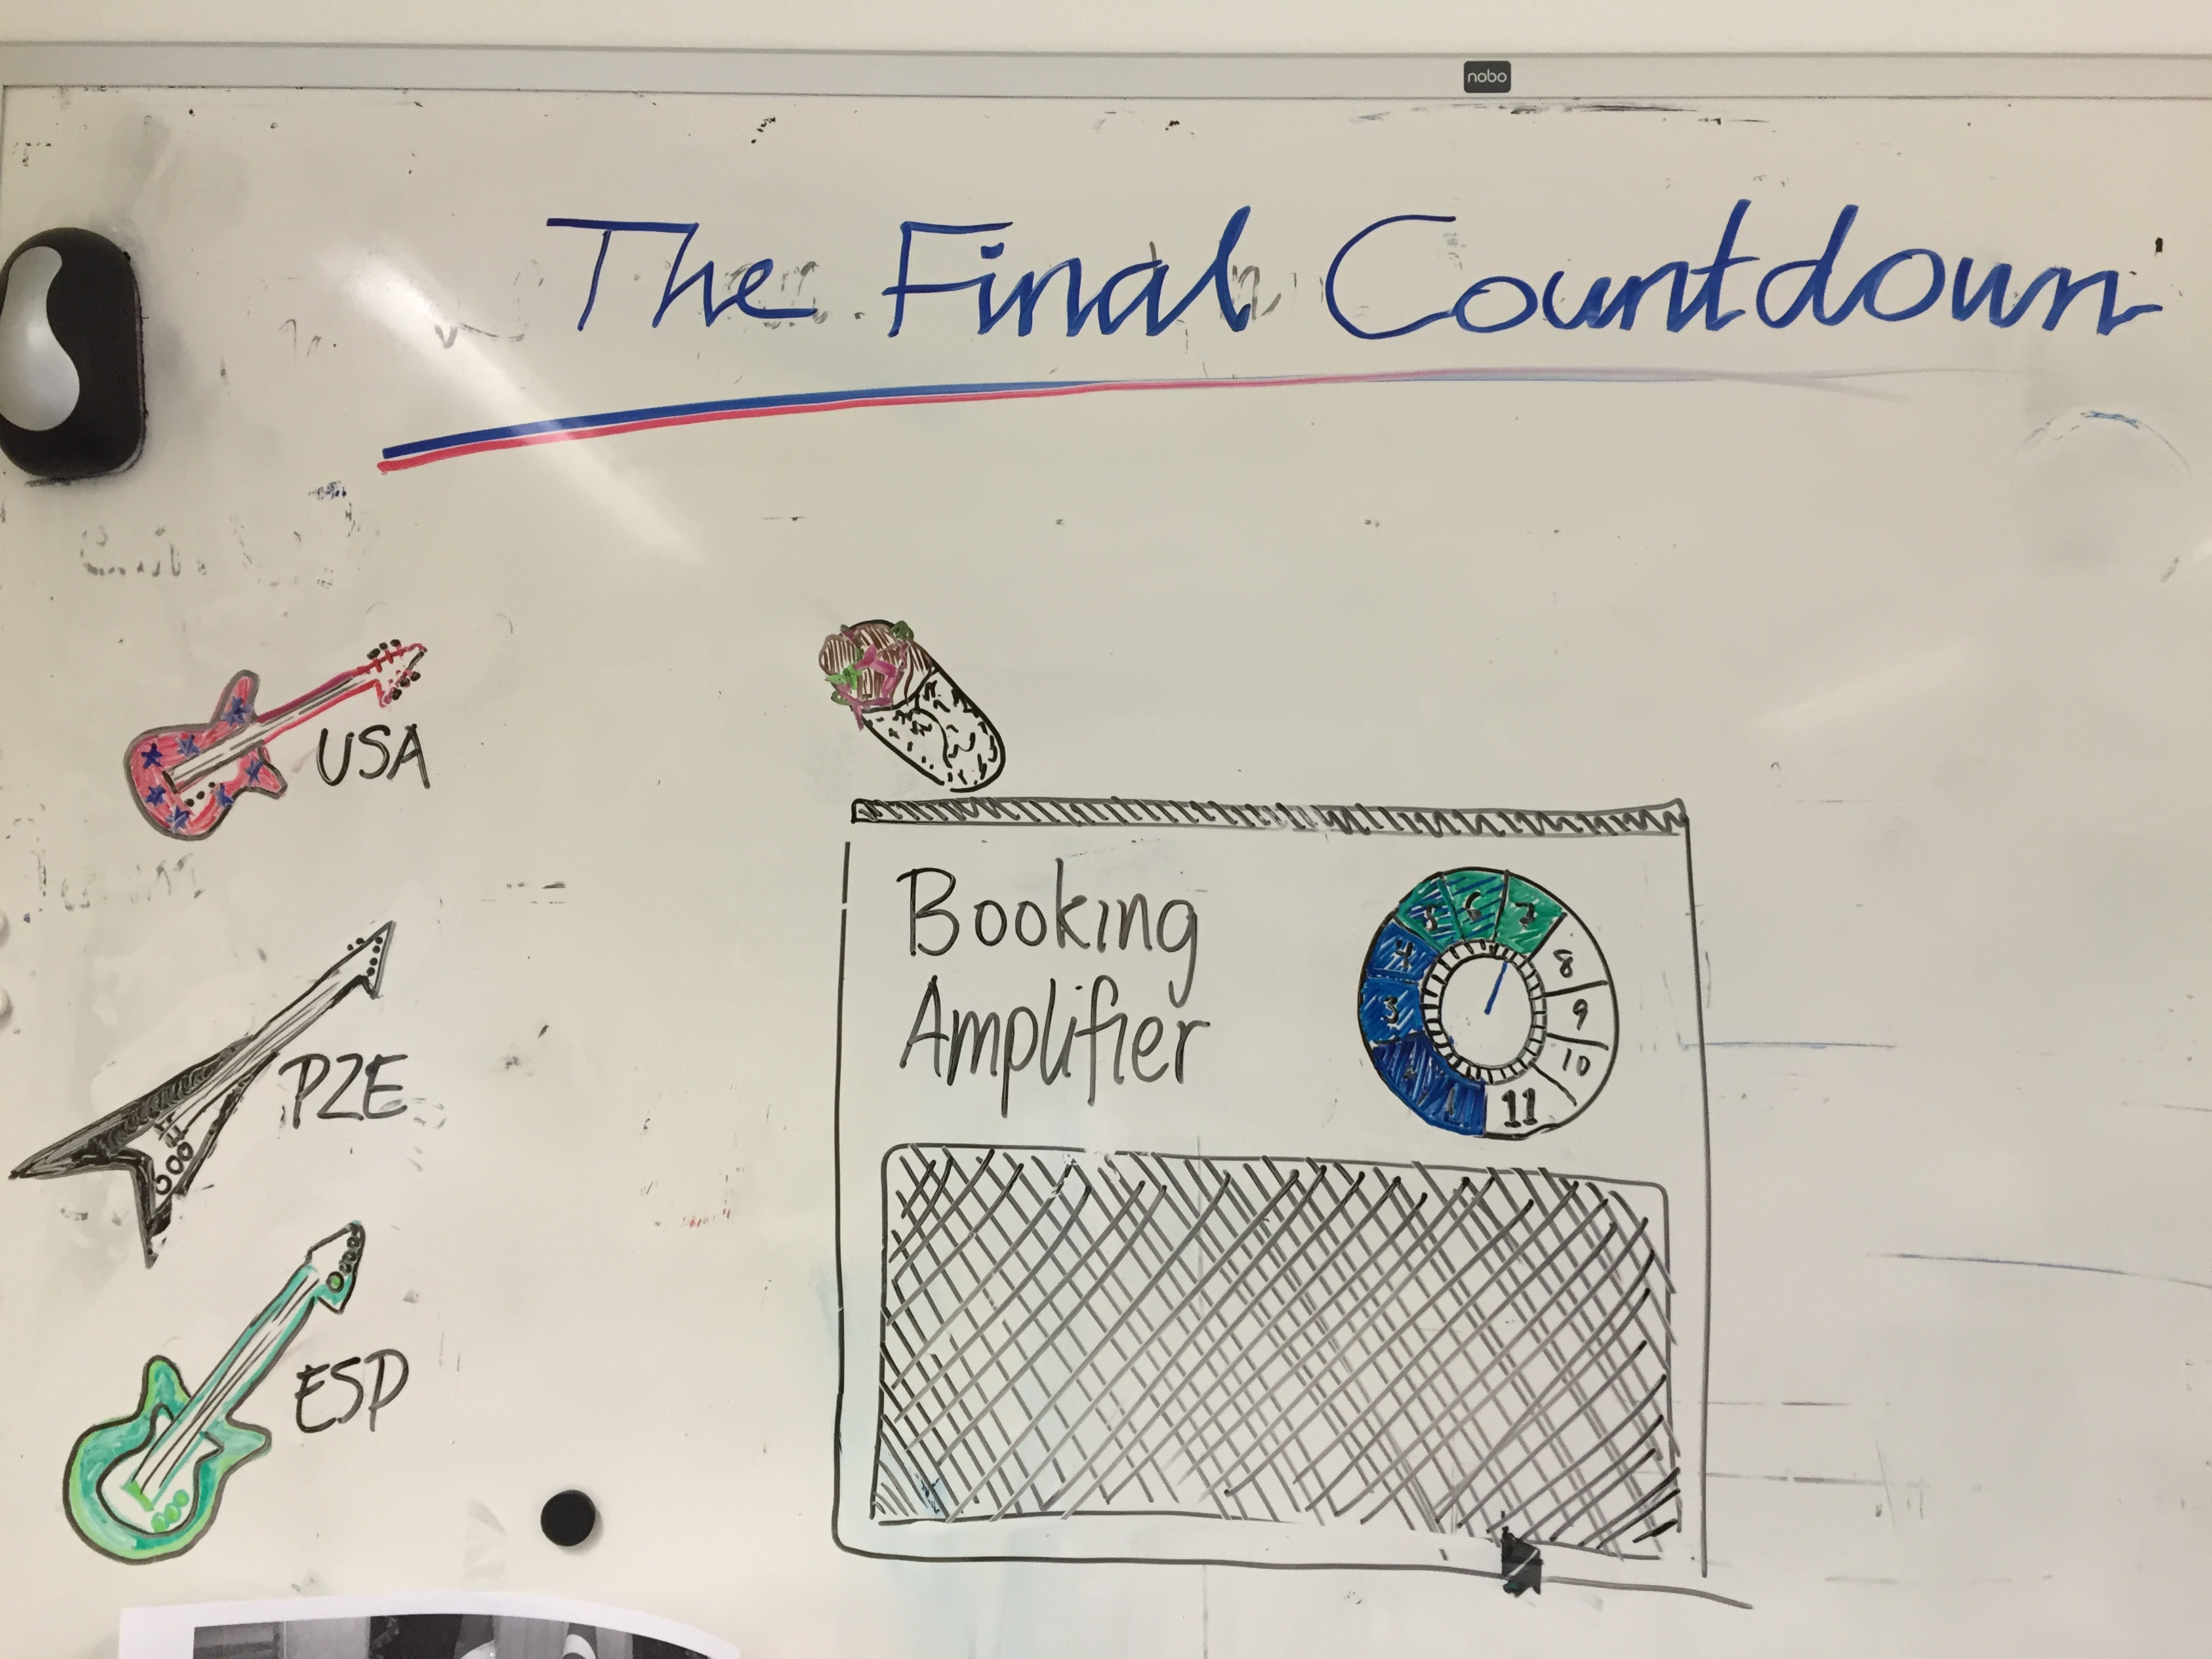 nobo
The Final Countdown
USA
PZE
ESP
Booking
Amplifier
1
2
3
4
5
6
7
8
9
10
11